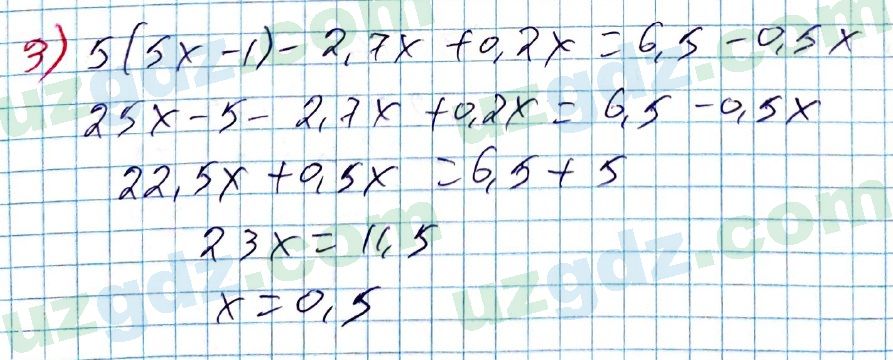 3) 5(5x-1)-2,7x+0,2x=6,5-0,5x
25x-5-2,7x+0,2x=6,5-0,5x
22,5x+0,5x=6,5+5
23x=11,5
x=0,5
uzgdz.com
uzgdz.com
uzgdz.com
uzgdz.com